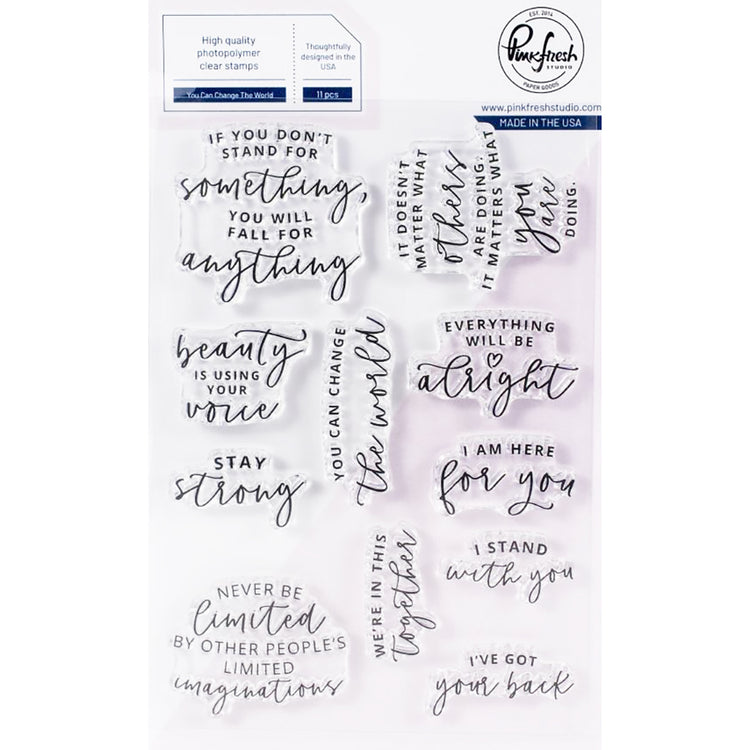 High quality
photopolymer
clear stamps
You Can Change The World
Thoughtfully
designed in the
USA
11 pcs
EST. 2014
Pinkfresh
STUDIO
PAPER GOODS
www.pinkfreshstudio.com
MADE IN THE USA
IF YOU DON'T
STAND FOR
something,
YOU WILL
FALL FOR
anything
IT DOESN'T
MATTER WHAT
others
ARE DOING.
IT MATTERS WHAT
you
are
DOING.
beauty
IS USING
YOUR
voice
YOU CAN CHANGE
the world
EVERYTHING
WILL BE
alright
STAY
strong
I AM HERE
for you
WE'RE IN THIS
together
I STAND
with you
NEVER BE
limited
BY OTHER PEOPLE'S
LIMITED
imaginations
I'VE GOT
your back